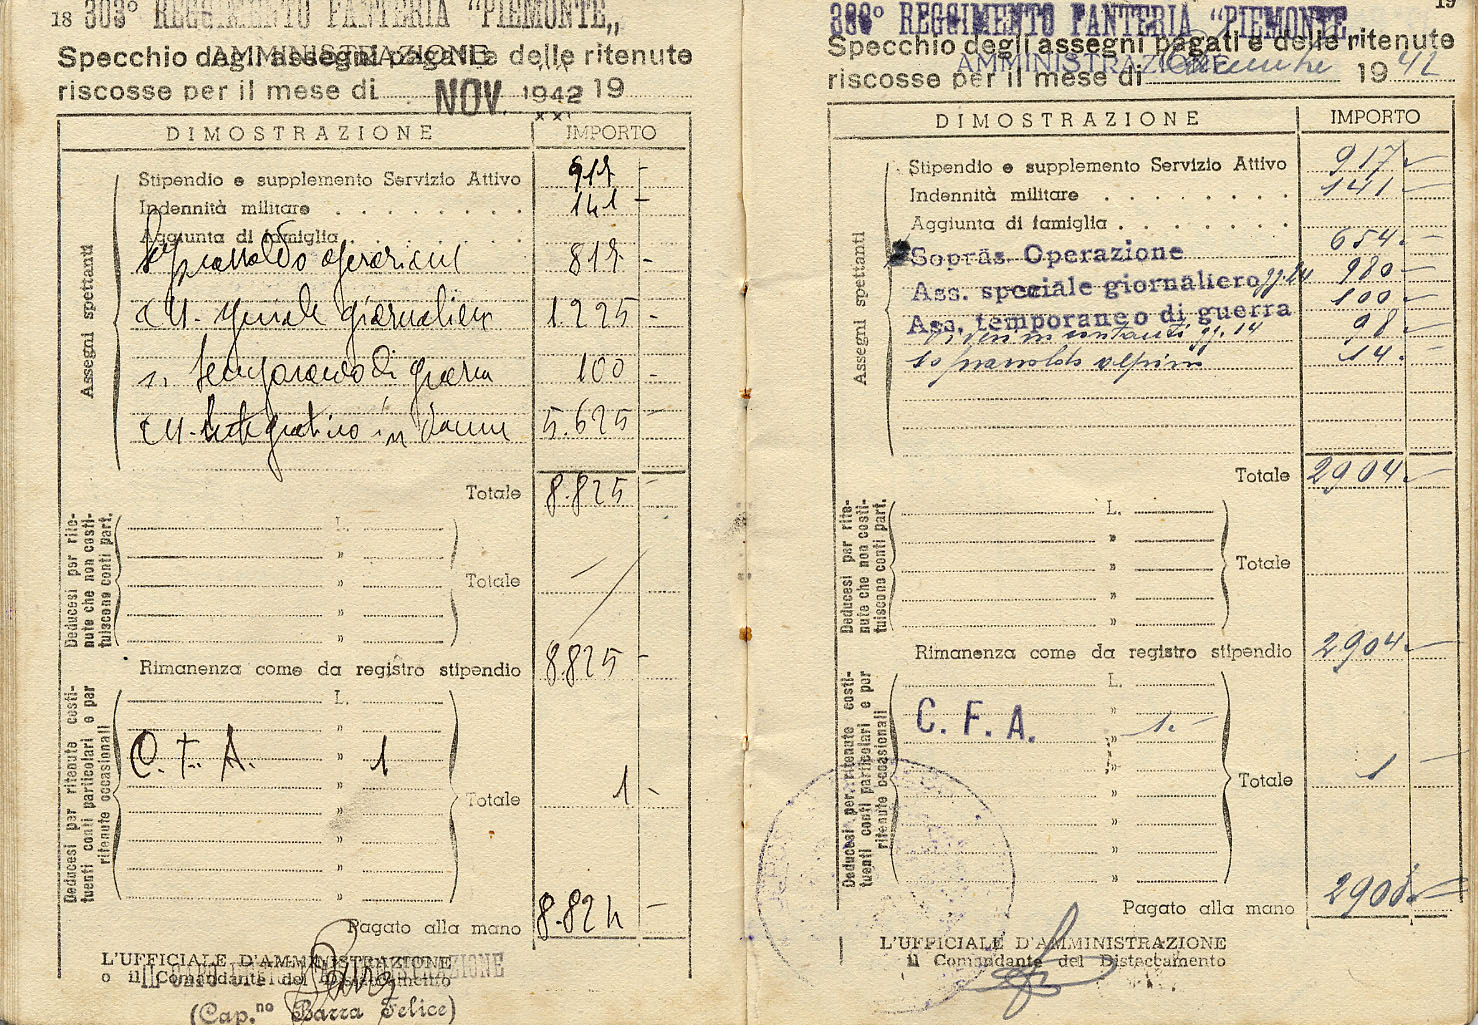 18 303° REGGIMENTO FANTERIA "PIEMONTE„
AMMINISTRAZIONE
Specchio degli assegni pagati e delle ritenute
riscosse per il mese di NOV. 1942 19
DIMOSTRAZIONE IMPORTO
Assegni spettanti
Stipendio e supplemento Servizio Attivo 917 -
Indennità militare 141 -
Aggiunta di famiglia
Soprassoldo operazioni 817 -
giornaliero 1225 -
temporaneo di guerra 100 -
integrativo in 5.625 -
Totale 8.825 -
Deducesi per rite-
nute che non costi-
tuiscono conti part.
L.
»
»
»
»
Totale
Rimanenza come da registro stipendio 8.825 -
Deducesi per ritenute costi-
tuenti conti particolari e per
ritenute occasionali
L.
C. F. A. » 1
»
»
»
»
Totale 1 -
Pagato alla mano 8.824 -
L'UFFICIALE D'AMMINISTRAZIONE
o il Comandante del Distaccamento
(Cap.no Barra Felice)
19
REGGIMENTO FANTERIA "PIEMONTE
AMMINISTRAZIONE
Specchio degli assegni pagati e delle ritenute
riscosse per il mese di Dicembre 1942
DIMOSTRAZIONE IMPORTO
Assegni spettanti
Stipendio e supplemento Servizio Attivo 917 -
Indennità militare 141 -
Aggiunta di famiglia
Sopras. Operazione 654 -
Ass. speciale giornaliero gg. 24 980 -
Ass. temporaneo di guerra 100 -
Viveri in contanti gg. 14 98 -
Soprassoldo alpini 14 -
Totale 2904 -
Deducesi per rite-
nute che non costi-
tuiscono conti part.
L.
»
»
»
»
Totale
Rimanenza come da registro stipendio 2904 -
Deducesi per ritenute costi-
tuenti conti particolari e per
ritenute occasionali
L.
C. F. A. » 1 -
»
»
»
»
»
Totale 1
Pagato alla mano
L'UFFICIALE D'AMMINISTRAZIONE
il Comandante del Distaccamento